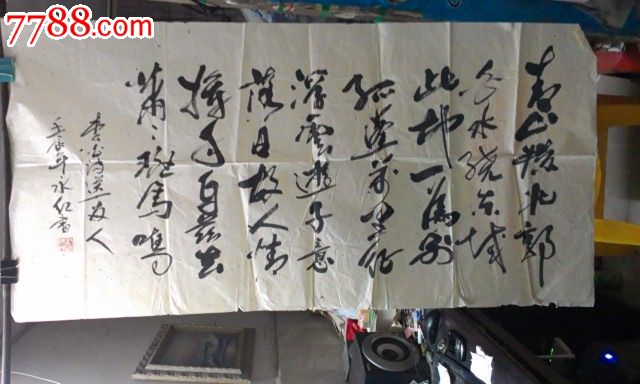 7788.com
青山横北郭
白水绕东城
此地一为别
孤蓬万里征
浮云游子意
落日故人情
挥手自兹去
萧々班马鸣
李白诗送友人
壬辰年水红書